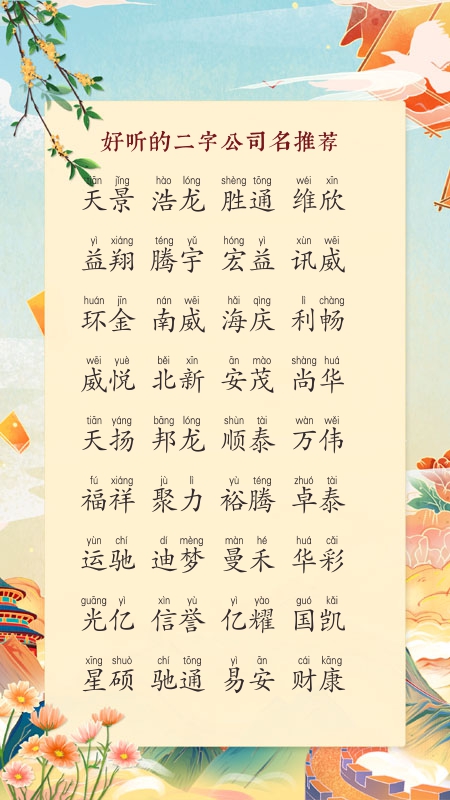 好听的二字公司名推荐
tiān jǐng hào lóng shèng tōng wéi xīn
天景 浩龙 胜通 维欣
yì xiáng téng yǔ hóng yì xùn wēi
益翔 腾宇 宏益 讯威
huán jīn nán wēi hǎi qìng lì chàng
环金 南威 海庆 利畅
wēi yuè běi xīn ān mào shàng huá
威悦 北新 安茂 尚华
tiān yáng bāng lóng shùn tài wàn wěi
天扬 邦龙 顺泰 万伟
fú xiáng jù lì yù téng zhuó tài
福祥 聚力 裕腾 卓泰
yùn chí dí mèng màn hé huá cǎi
运驰 迪梦 曼禾 华彩
guāng yì xìn yù yì yào guó kǎi
光亿 信誉 亿耀 国凯
xīng shuò chí tōng yì ān cái kāng
星硕 驰通 易安 财康